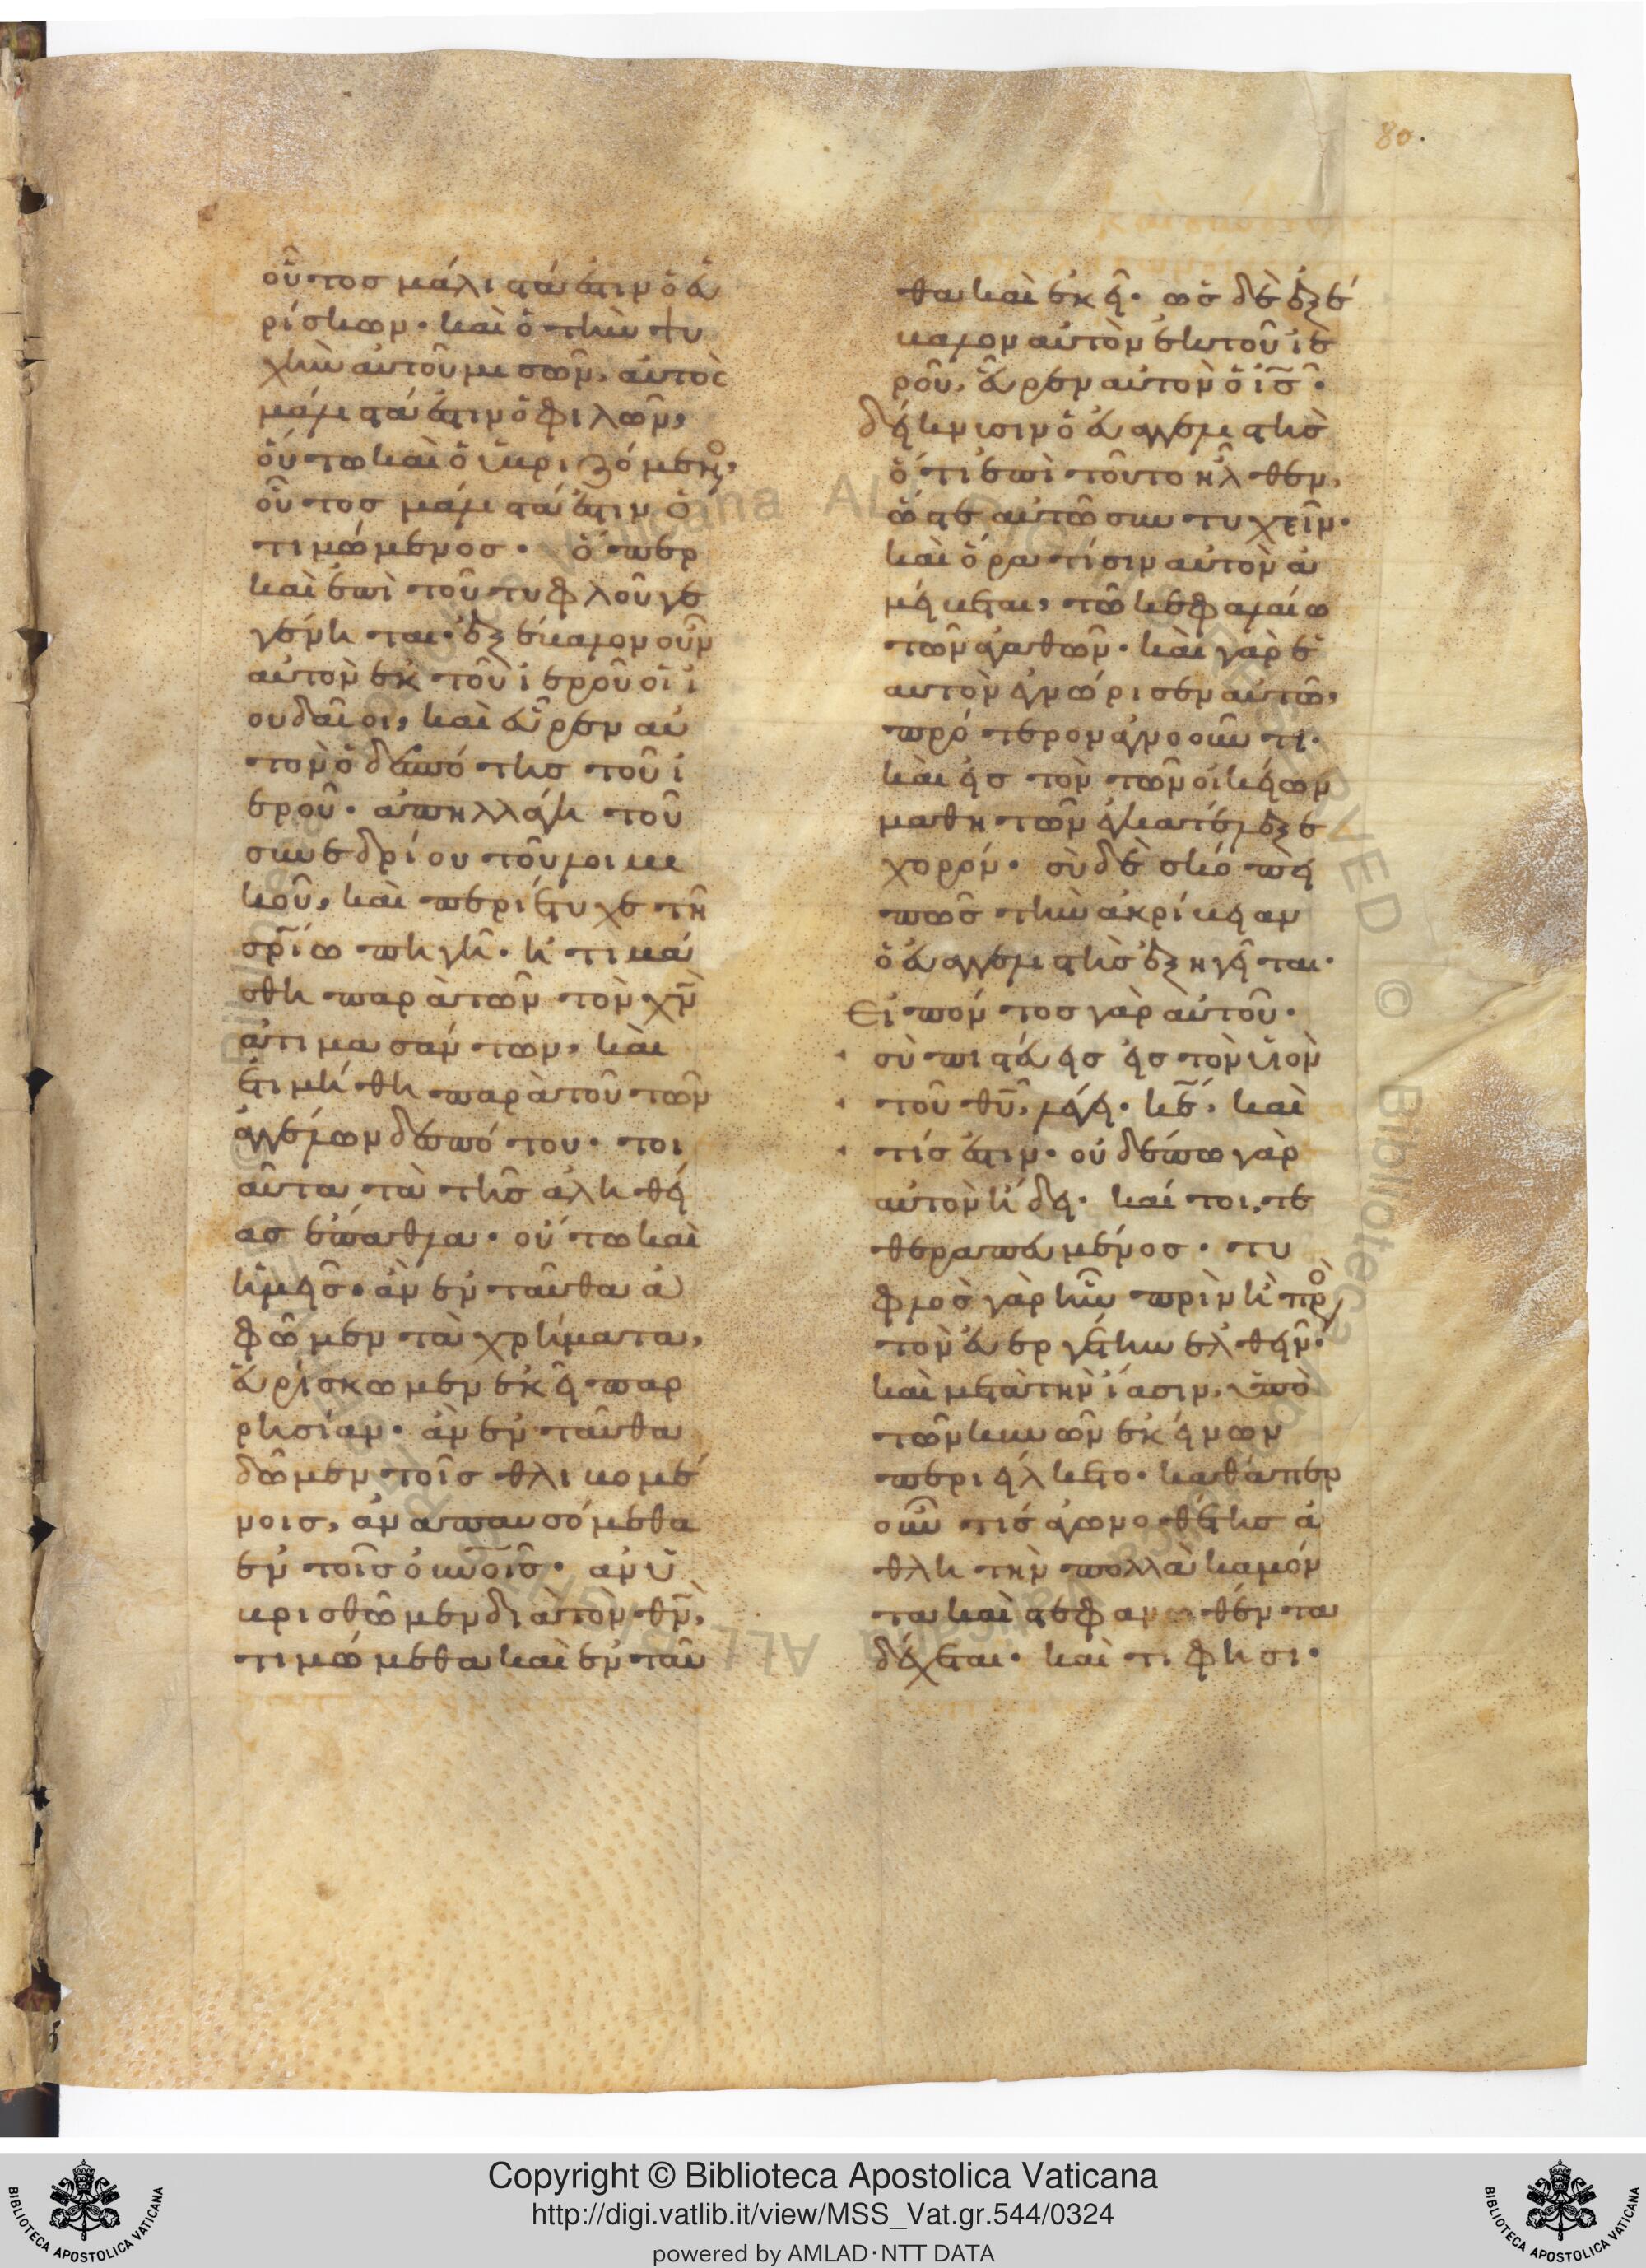 80.
οὗτος μάλιστά ἐστιν ὁ εὑ
ρίσκων· καὶ ὁ τὴν ψυ
χὴν αὐτοῦ μισῶν, αὐτὸς
μάλιστά ἐστιν ὁ φιλῶν,
οὕτω καὶ ὁ ὑβριζόμενος,
οὗτος μάλιστά ἐστιν ὁ
τιμώμενος· ὅπερ
καὶ ἐπὶ τοῦ τυφλοῦ γε
γένηται· ἐξέβαλον οὖν
αὐτὸν ἐκ τοῦ ἱεροῦ οἱ ἰ
ουδαῖοι, καὶ εὗρεν αὐ
τὸν ὁ δεσπότης τοῦ ἱ
εροῦ· ἀπηλλάγη τοῦ
συνεδρίου τοῦ λοιμι
κοῦ, καὶ περιέτυχε τῆ
σρίω πηγῆ· ἠτιμά
σθη παρὰ τῶν τὸν χν
ἀτιμασάντων, καὶ
ἐτιμήθη παρὰ τοῦ τῶν
ἀγγέλων δεσπότου· τοι
αῦτα τὰ τῆς ἀληθεί
ας ἔπαθλα· οὕτω καὶ
ἡμεῖς· ἂν ἐνταῦθα ἀ
φῶμεν τὰ χρήματα,
εὑρίσκωμεν ἐκεῖ παρ
ρησίαν· ἂν ἐνταῦθα
δῶμεν τοῖς θλιβομέ
νοις, ἀναπαυσόμεθα
ἐν τοῖς οὐνοῖς· ἂν ὑ
βρισθῶμεν διὰ τὸν θν,
τιμώμεθα καὶ ἐνταῦ
θα καὶ ἐκεῖ· ὡς δὲ ἐξέ
βαλον αὐτὸν ἐκ τοῦ ἱε
ροῦ, εὗρεν αὐτὸν ὁ ισ·
δείκνυσιν ὁ εὐαγγελιστὴς
ὅτι ἐπὶ τοῦτο ἦλθεν,
ὥστε αὐτῶ συντυχεῖν·
καὶ ὅρα τίσιν αὐτὸν ἀ
μείβεται, τῶ κεφαλαίω
τῶν ἀγαθῶν· καὶ γὰρ ἑ
αυτὸν ἐγνώρισεν αὐτῶ,
πρότερον ἀγνοοῦντι·
καὶ εἰς τὸν τῶν οἰκείων
μαθητῶν ἐγκατέλεξε
χορόν· σὺ δὲ σκόπει
πῶς τὴν ἀκρίβειαν
ὁ εὐαγγελιστὴς ἐξηγεῖται·
Εἰπόντος γὰρ αὐτοῦ·
σὺ πιστεύεις εἰς τὸν υἱὸν
τοῦ θυ, λέγει· κε, καὶ
τίς ἐστιν· οὐδέπω γὰρ
αὐτὸν ἤδει· καίτοι τε
θεραπευμένος· τυ
φλὸς γὰρ ἦν πρὶν ἢ πρὸς
τὸν εὐεργέτην ἐλθεῖν·
καὶ μετὰ τὴν ἴασιν, ὑπὸ
τῶν κυνῶν ἐκείνων
περιείλκετο· καθάπερ
οὖν τις ἀγωνοθέτης ἀ
θλητὴν πολλὰ καμόν
τα καὶ στεφανωθέντα
δέχεται· καὶ τί φησι·
Copyright © Biblioteca Apostolica Vaticana
http://digi.vatlib.it/view/MSS_Vat.gr.544/0324
powered by AMLAD·NTT DATA
BIBLIOTECA APOSTOLICA VATICANA
BIBLIOTECA APOSTOLICA VATICANA